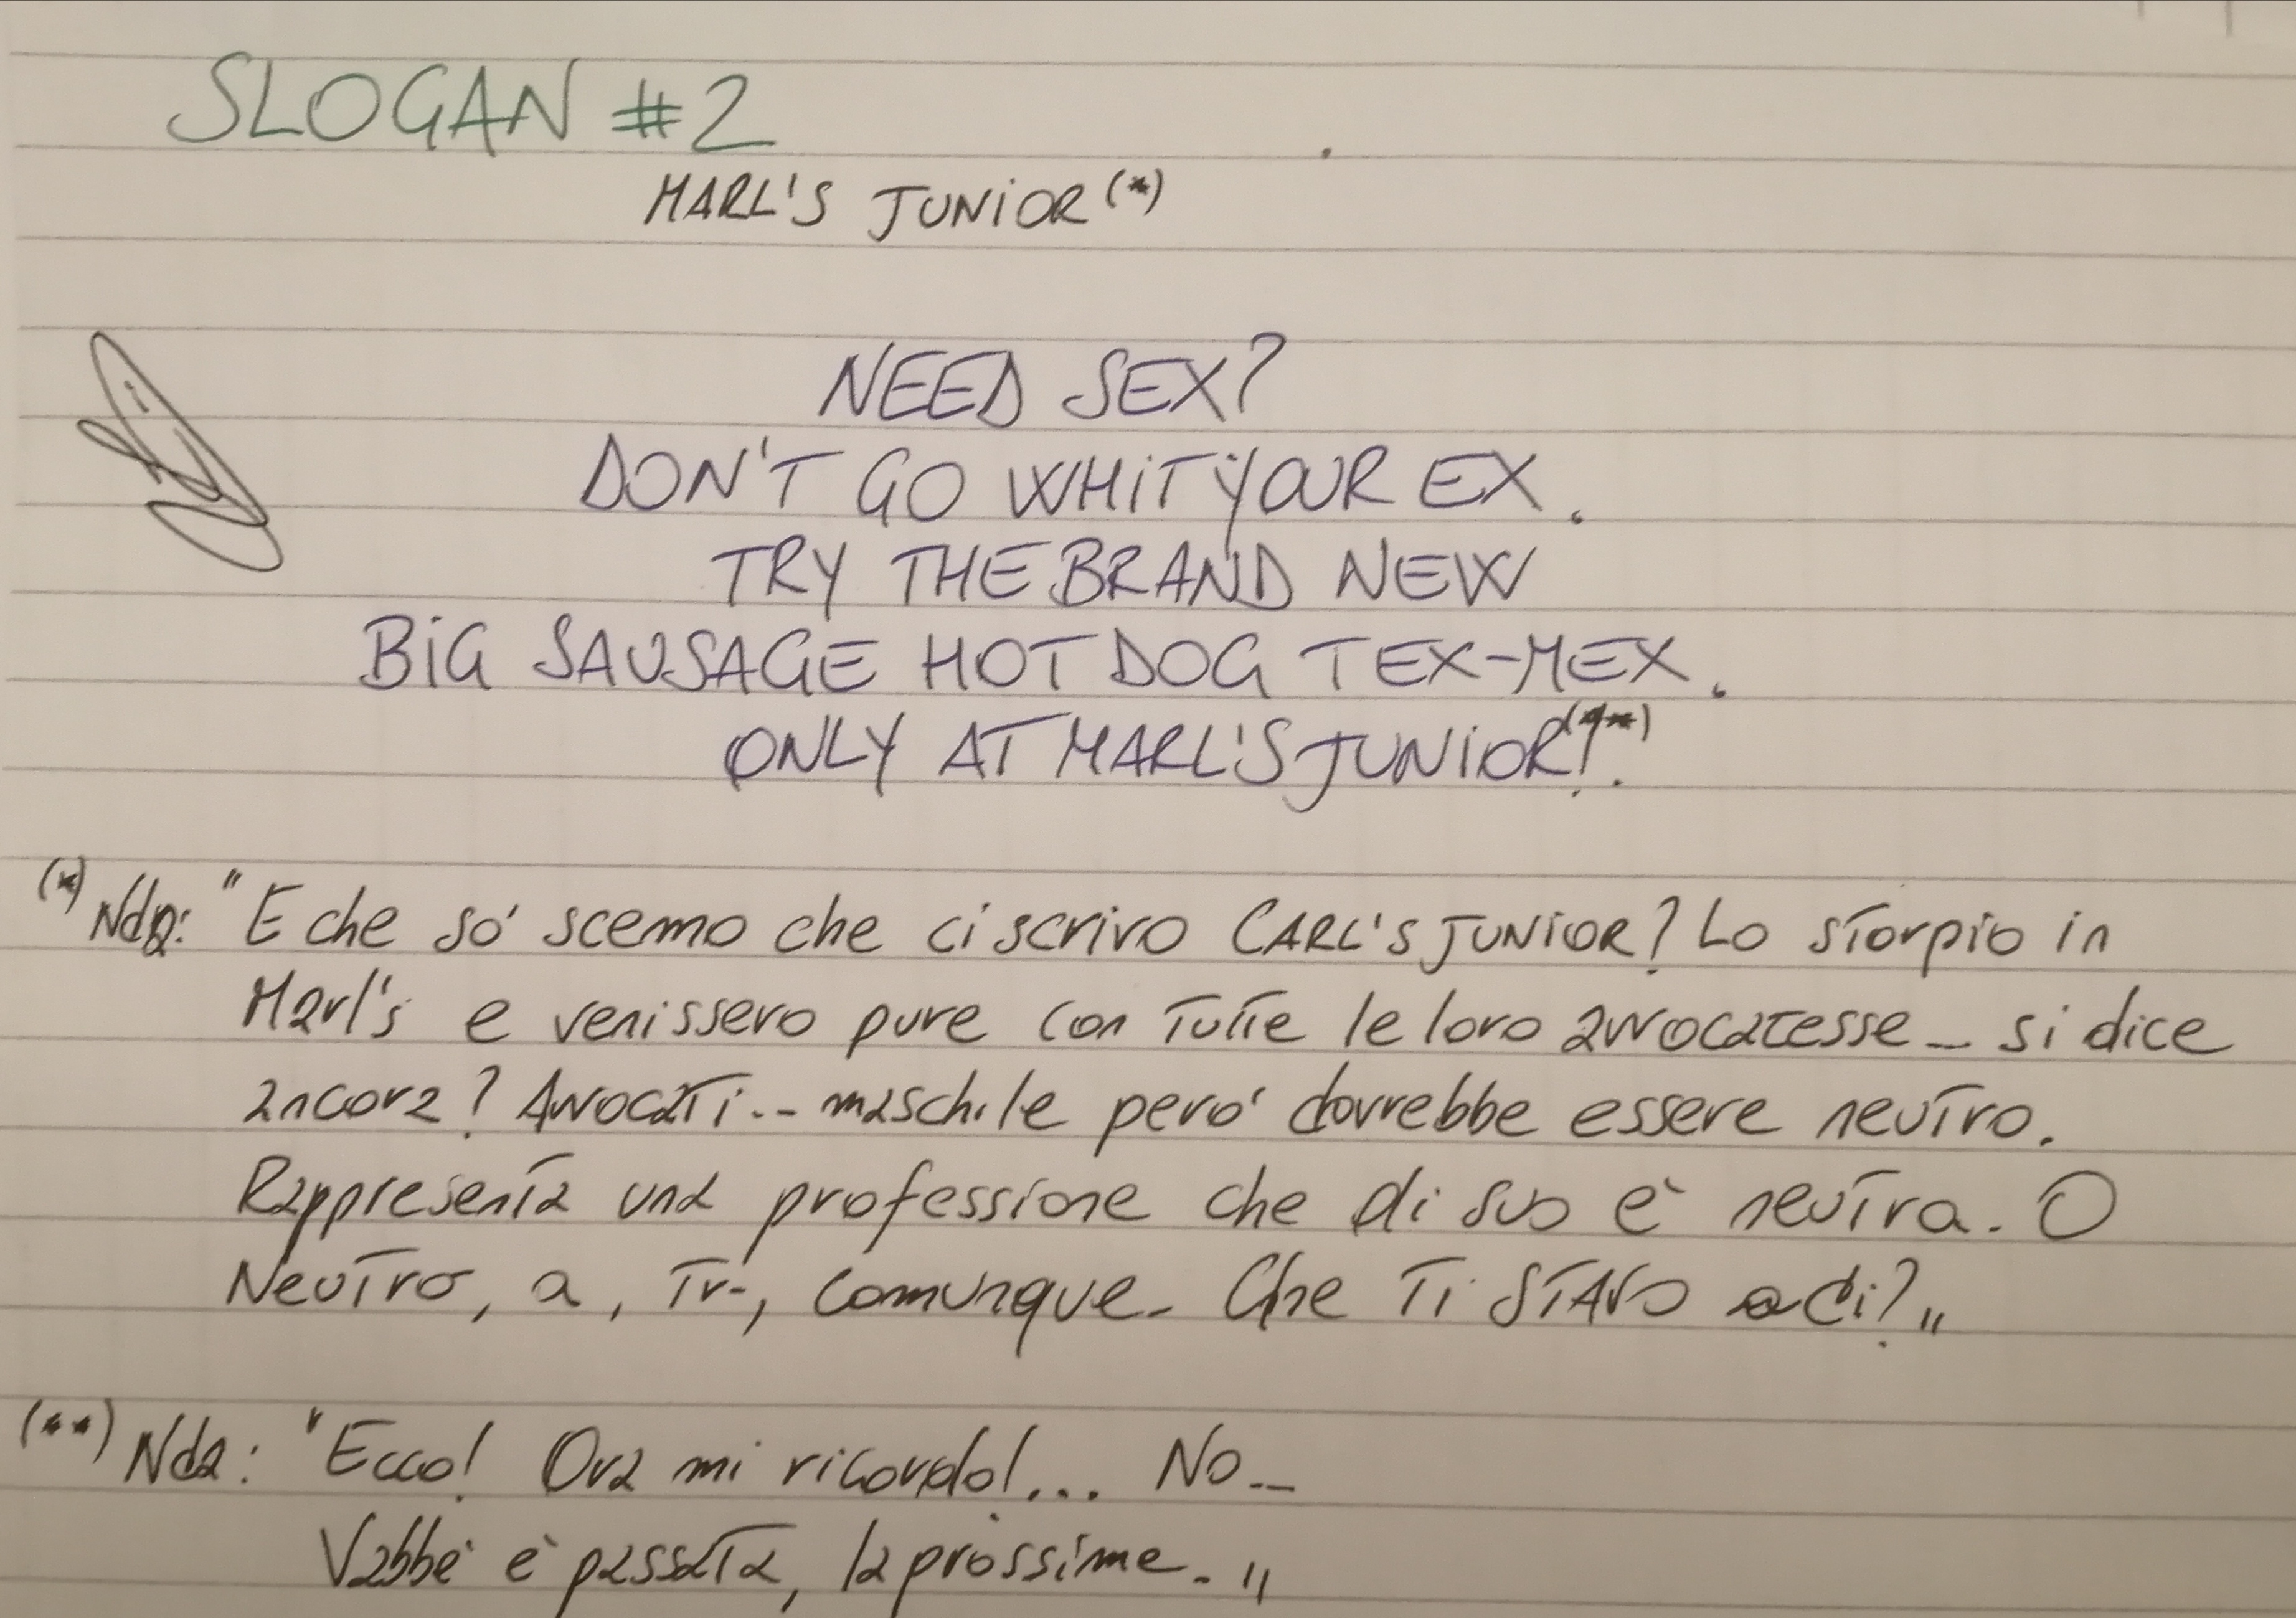 SLOGAN #2
MARL'S JUNIOR (*)
NEED SEX?
DON'T GO WHIT YOUR EX.
TRY THE BRAND NEW
BIG SAUSAGE HOT DOG TEX-MEX.
ONLY AT MARL'S JUNIOR! (**)
(*) Nda: "E che so' scemo che ci scrivo CARL'S JUNIOR? Lo storpio in
Marl's e venissero pure con tutte le loro avvocatesse... si dice
ancora? Avvocati... maschile però dovrebbe essere neutro.
Rappresenta una professione che di suo è neutra. O
Neutro, a, tr-, comunque... Che ti STAVO a di?"
(**) Nda: "Ecco! Ora mi ricordo!... No...
Vabbè è passata, la prossime."